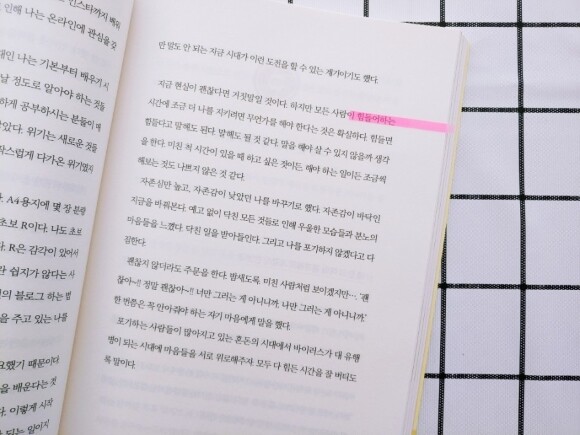 인스타까지 배워
인해 나는 온라인에 관심을 갖
대인 나는 기본부터 배우기 시
날 정도로 알아야 하는 것들
하게 공부하시는 분들이
았다. 위기는 새로운 것들
라스럽게 다가온 위기였지
다. A4용지에 몇 장 분량
초보 R이다. 나도 초보
다. R은 감각이 있어서
단 쉽지가 않다는 사
년의 블로그 하는 법
을 주고 있는 나를
요했기 때문이다
을 배운다는 것
다. 이렇게 시작
되는 일이지
만 말도 안 되는 지금 시대가 이런 도전을 할 수 있는 계기이기도 했다.
지금 현실이 괜찮다면 거짓말일 것이다. 하지만 모든 사람이 힘들어하는
시간에 조금 더 나를 지키려면 무언가를 해야 한다는 것은 확실하다. 힘들면
힘들다고 말해도 된다. 말해도 될 것 같다. 말을 해야 살 수 있지 않을까 생각
을 한다. 미친 척 시간이 있을 때 하고 싶은 것이든, 해야 하는 일이든 조금씩
해보는 것도 나쁘지 않은 것 같다.
자존심만 높고, 자존감이 낮았던 나를 바꾸기로 했다. 자존감이 바닥인
지금을 바꿔본다. 예고 없이 닥친 모든 것들로 인해 우울한 모습들과 분노의
마음들을 느꼈다. 닥친 일을 받아들인다. 그리고 나를 포기하지 않겠다고 다
짐한다.
괜찮지 않더라도 주문을 한다. 밤새도록. 미친 사람처럼 보이겠지만…. '괜
찮아~!! 정말 괜찮아~!! 너만 그러는 게 아니니까, 나만 그러는 게 아니니까.'
한 번쯤은 꼭 안아줘야 하는 자기 마음에게 말을 했다.
포기하는 사람들이 많아지고 있는 혼돈의 시대에서 바이러스가 대 유행
병이 되는 시대에 마음들을 서로 위로해주자. 모두 다 힘든 시간을 잘 버티도
록 말이다.